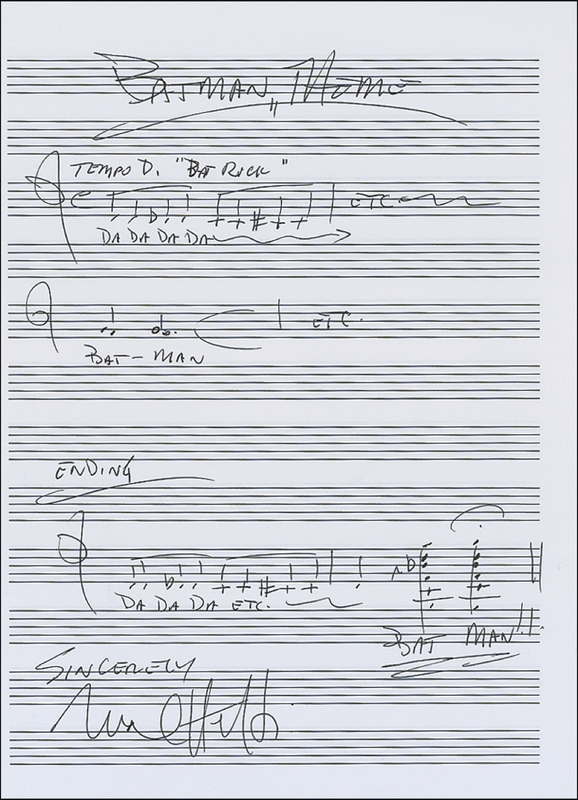 BATMAN THEME
TEMPO D. "BAT RICK"
ETC.
DA DA DA DA
ETC.
BAT-MAN
ENDING
DA DA DA ETC.
BAT MAN!!
SINCERELY